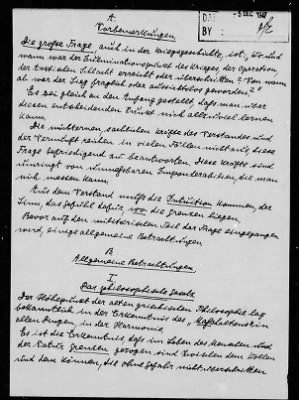 A.
Vorbemerkungen
Die große Frage, auch in der Kriegsgeschichte, ist: Wo und
wann war der Kulminationspunkt des Krieges, der Operation,
der Schlacht erreicht oder überschritten? Von wann
ab war der Sieg fraglich oder aussichtslos geworden?"
Es sei gleich an den Anfang gestellt, daß man über
diesen entscheidenden Punkt nich
kann.
Die nüchternen sachlichen Kräfte des Verstandes und
der Vernunft reichen in vielen Fällen nicht aus, diese
Frage befriedigend zu beantworten. Diese Kräfte sind
umringt von unmeßbaren Imponderabilien, die man
nich messen kann.
Aus dem Verstand muß die Intuition kommen, der
Sinn, das Gefühl dafür, wo die Grenzen liegen.
Bevor auf den militärischen Teil der Frage eingegangen
wird, einige allgemeine Betrachtungen
B.
Allgemeine Betrachtungen
I.
Das philosophische Gesetz
Der Höhepunkt der alten griechischen Philosophie lag
bekanntlich in der Erkenntnis des „Maßhaltens in
allen Dingen, in der Harmonie
Es ist die Erkenntnis, daß im Leben des Menschen und
der Natur Grenzen gezogen sind zwischen dem Wollen
und dem Können, die ohne Gefahr nicht überschritten
DEC 1947